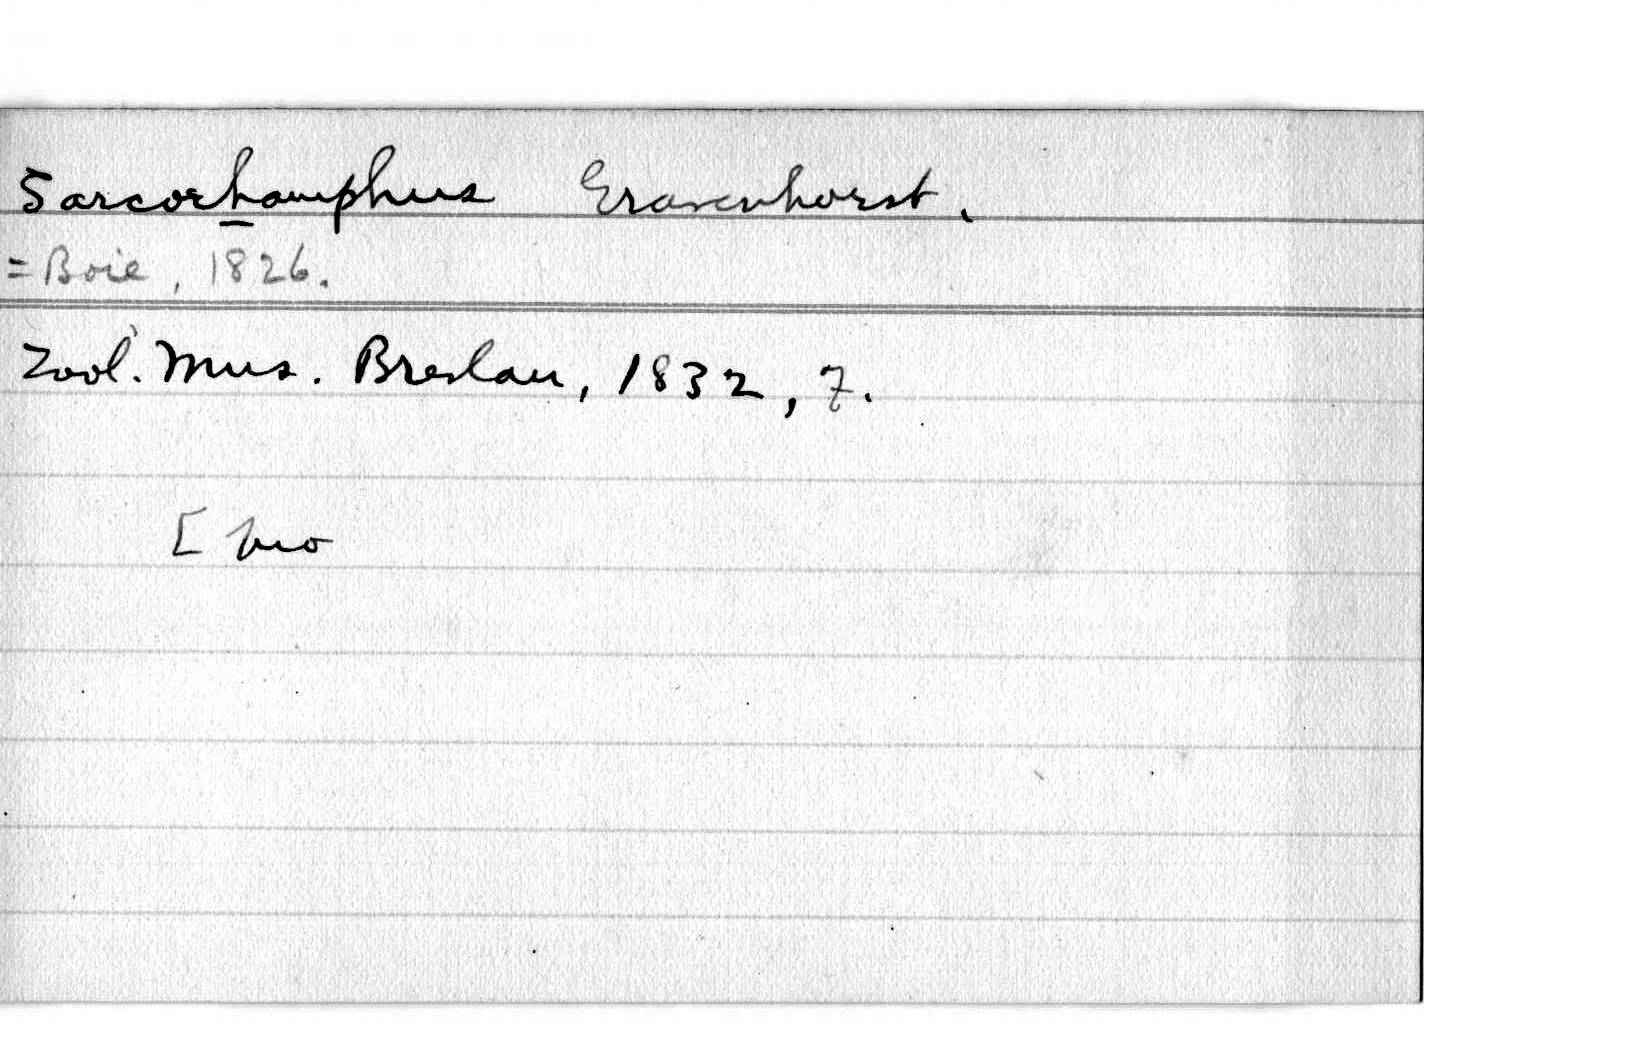 Sarcorhamphus Gravenhorst.
= Boie, 1826.
Zool. Mus. Breslau, 1832, 7.